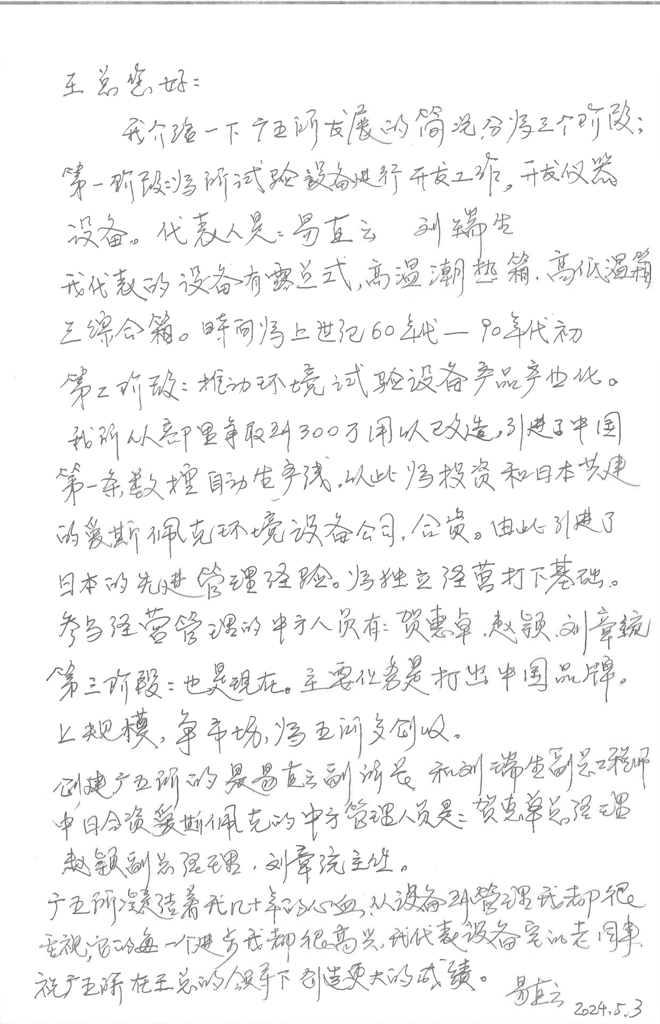 王总您好：
我介绍一下广五所发展的简况，分为三个阶段；
第一阶段：为所试验设备进行开发工作。开发仪器
设备。代表人是：易直云 刘瑞生
我代表的设备有露点式，高温潮热箱．高低温箱
三综合箱。时间为上世纪60年代—90年代初
第二阶段：推动环境试验设备产品产业化。
我所从部里争取到300万用以改造，引进了中国
第一条数控自动生产线，以此为投资和日本共建
的爱斯佩克环境设备公司，合资。由此引进了
日本的先进管理经验。为独立经营打下基础。
参与经营管理的中方人员有：贺惠卓．赵颖．刘章统
第三阶段：也是现在。主要任务是打出中国品牌。
上规模，争市场，为五所多创收。
创建广五所的是易直云副所长 和刘瑞生副总工程师
中日合资爱斯佩克的中方管理人员是：贺惠卓总经理
赵颖副总经理．刘章统主任。
广五所凝结着我几十年的心血，从设备到管理我都很
重视，它的每一个进步我都很高兴，我代表设备室的老同事
祝广五所在王总的领导下创造更大的成绩。
易直云
2024.5.3